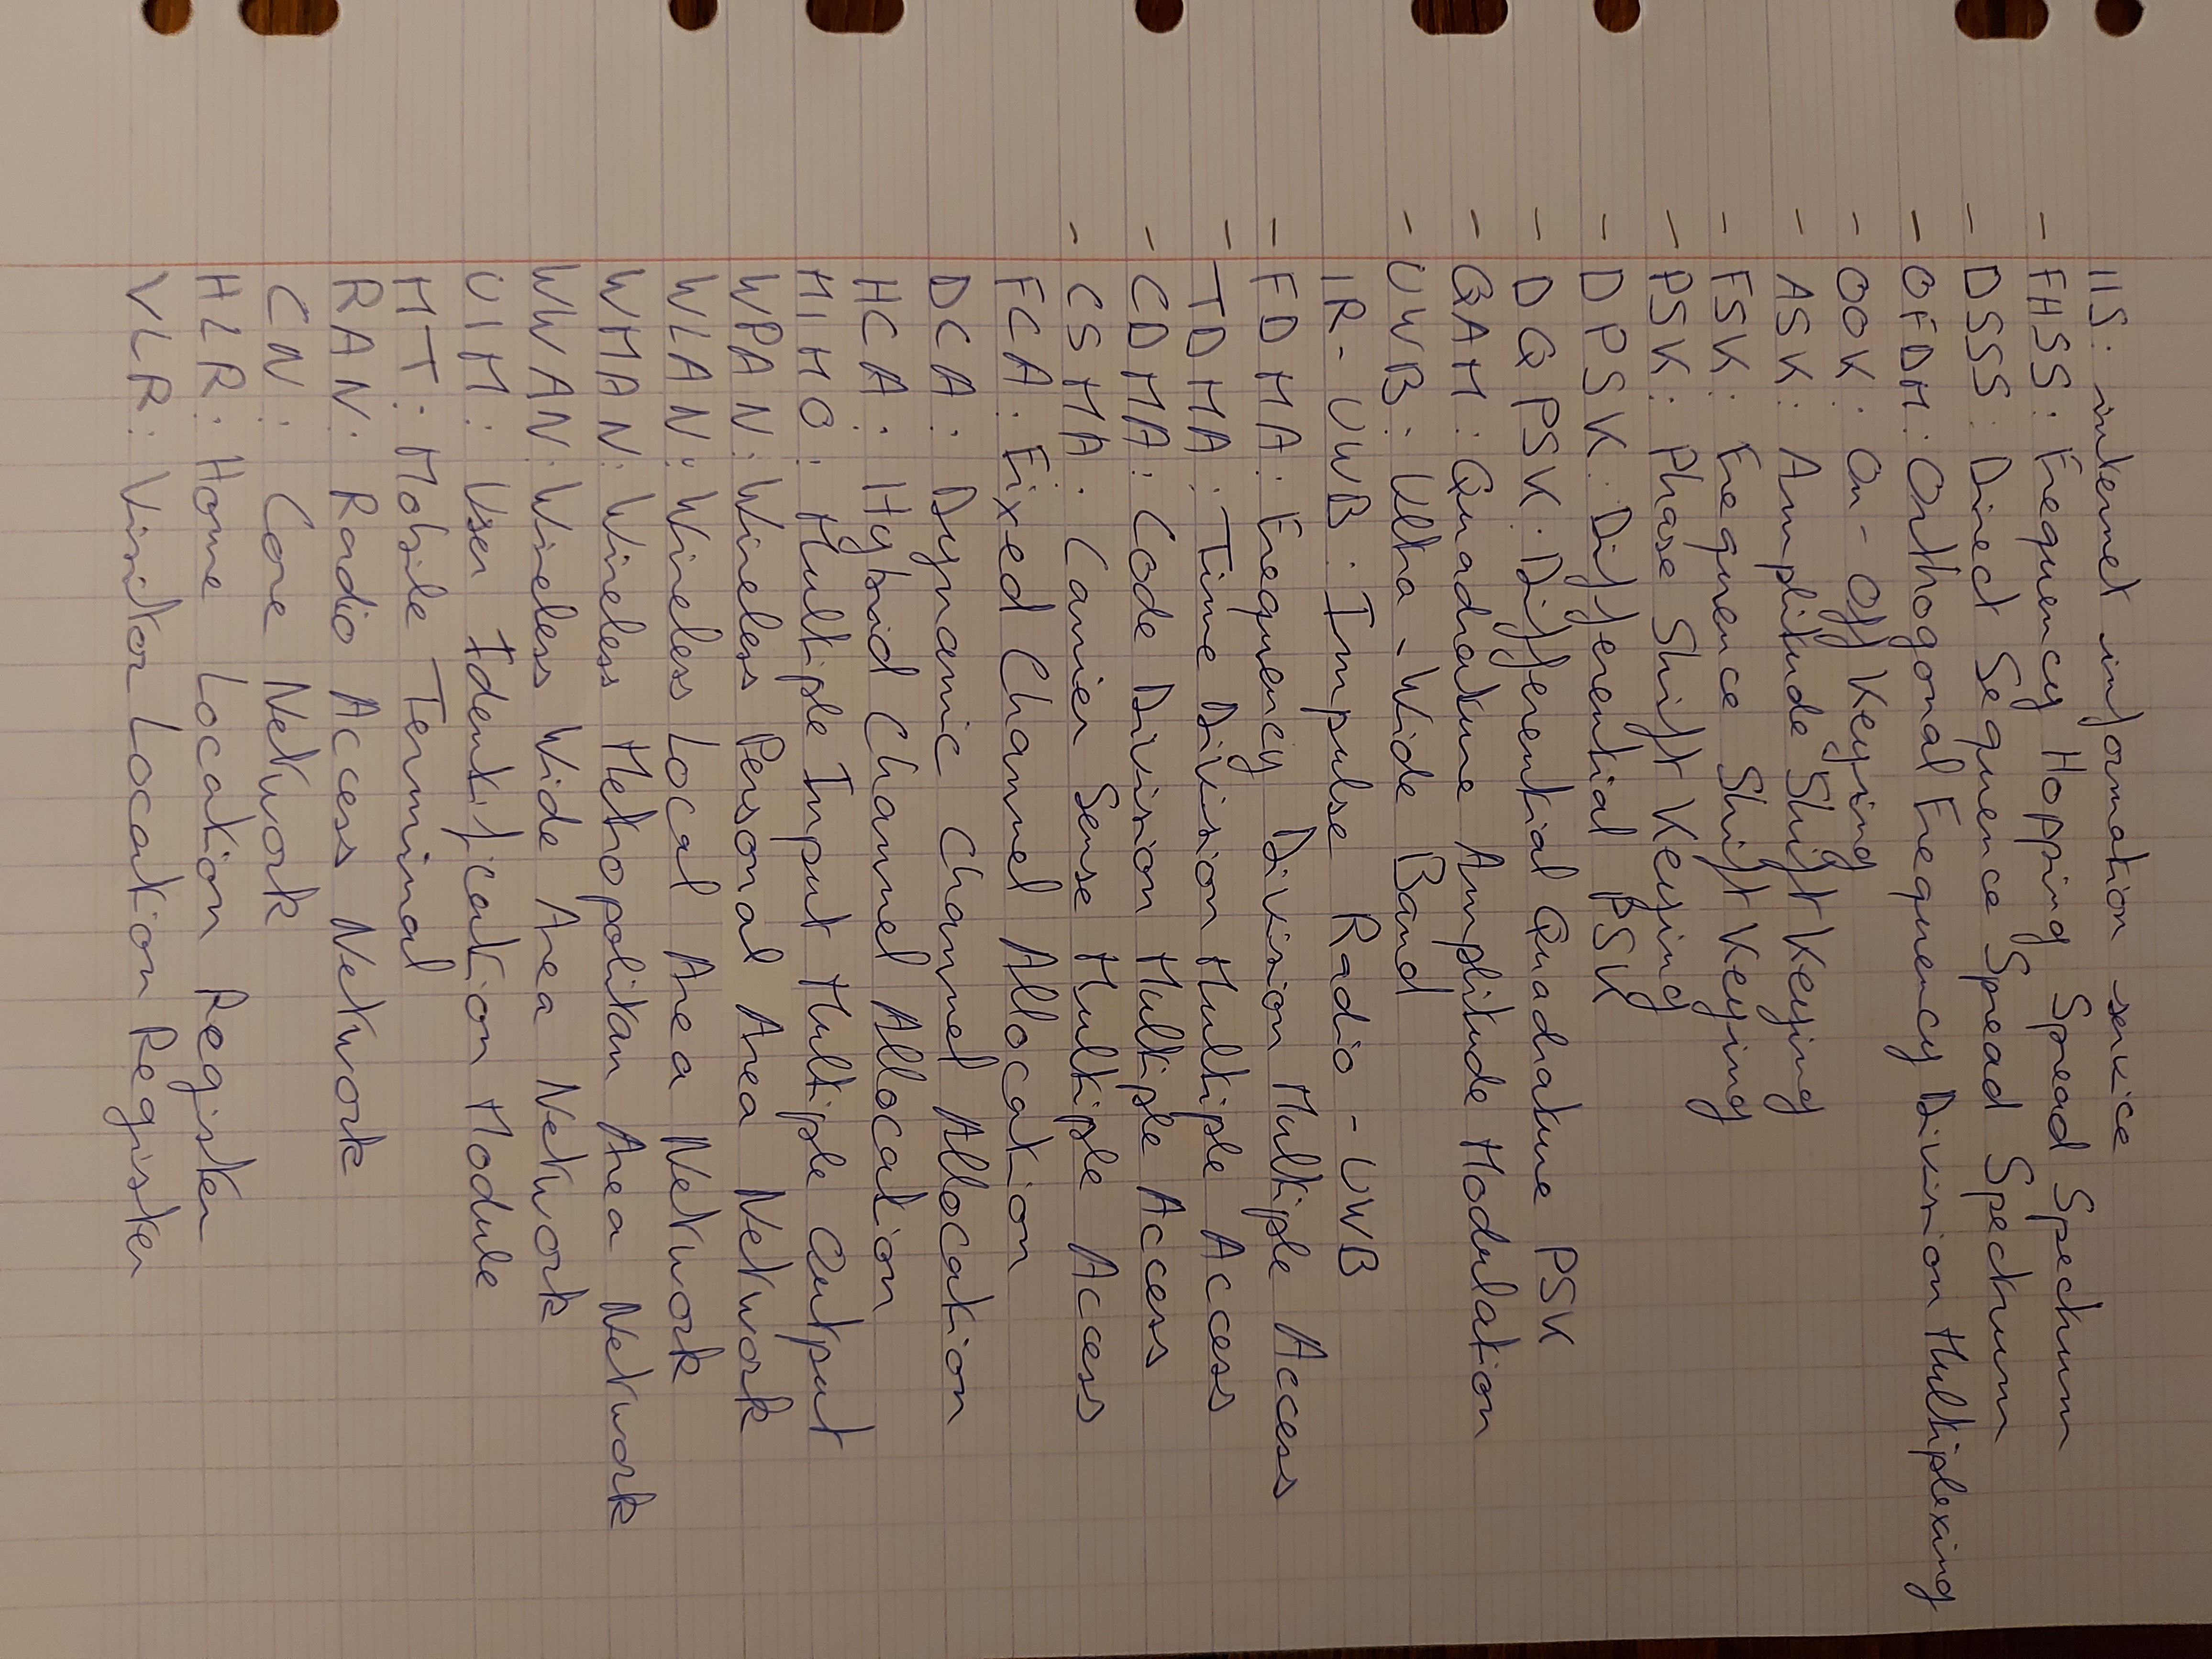 IIS: internet information service
- FHSS: Frequency Hopping Spread Spectrum
- DSSS: Direct Sequence Spread Spectrum
- OFDM: Orthogonal Frequency Division Multiplexing
- OOK: On-Off Keying
- ASK: Amplitude Shift Keying
- FSK: Frequence Shift Keying
- PSK: Phase Shift Keying
- DPSK: Differential PSK
- DQPSK: Differential Quadrature PSK
- QAM: Quadrature Amplitude Modulation
- UWB: Ultra-Wide Band
IR-UWB: Impulse Radio-UWB
- FDMA: Frequency Division Multiple Access
- TDMA: Time Division Multiple Access
- CDMA: Code Division Multiple Access
- CSMA: Carrier Sense Multiple Access
FCA: Fixed Channel Allocation
DCA: Dynamic Channel Allocation
HCA: Hybrid Channel Allocation
MIMO: Multiple Input Multiple Output
WPAN: Wireless Personal Area Network
WLAN: Wireless Local Area Network
WMAN: Wireless Metropolitan Area Network
WWAN: Wireless Wide Area Network
UIM: User Identification Module
MT: Mobile Terminal
RAN: Radio Access Network
CN: Core Network
HLR: Home Location Register
VLR: Visitor Location Register